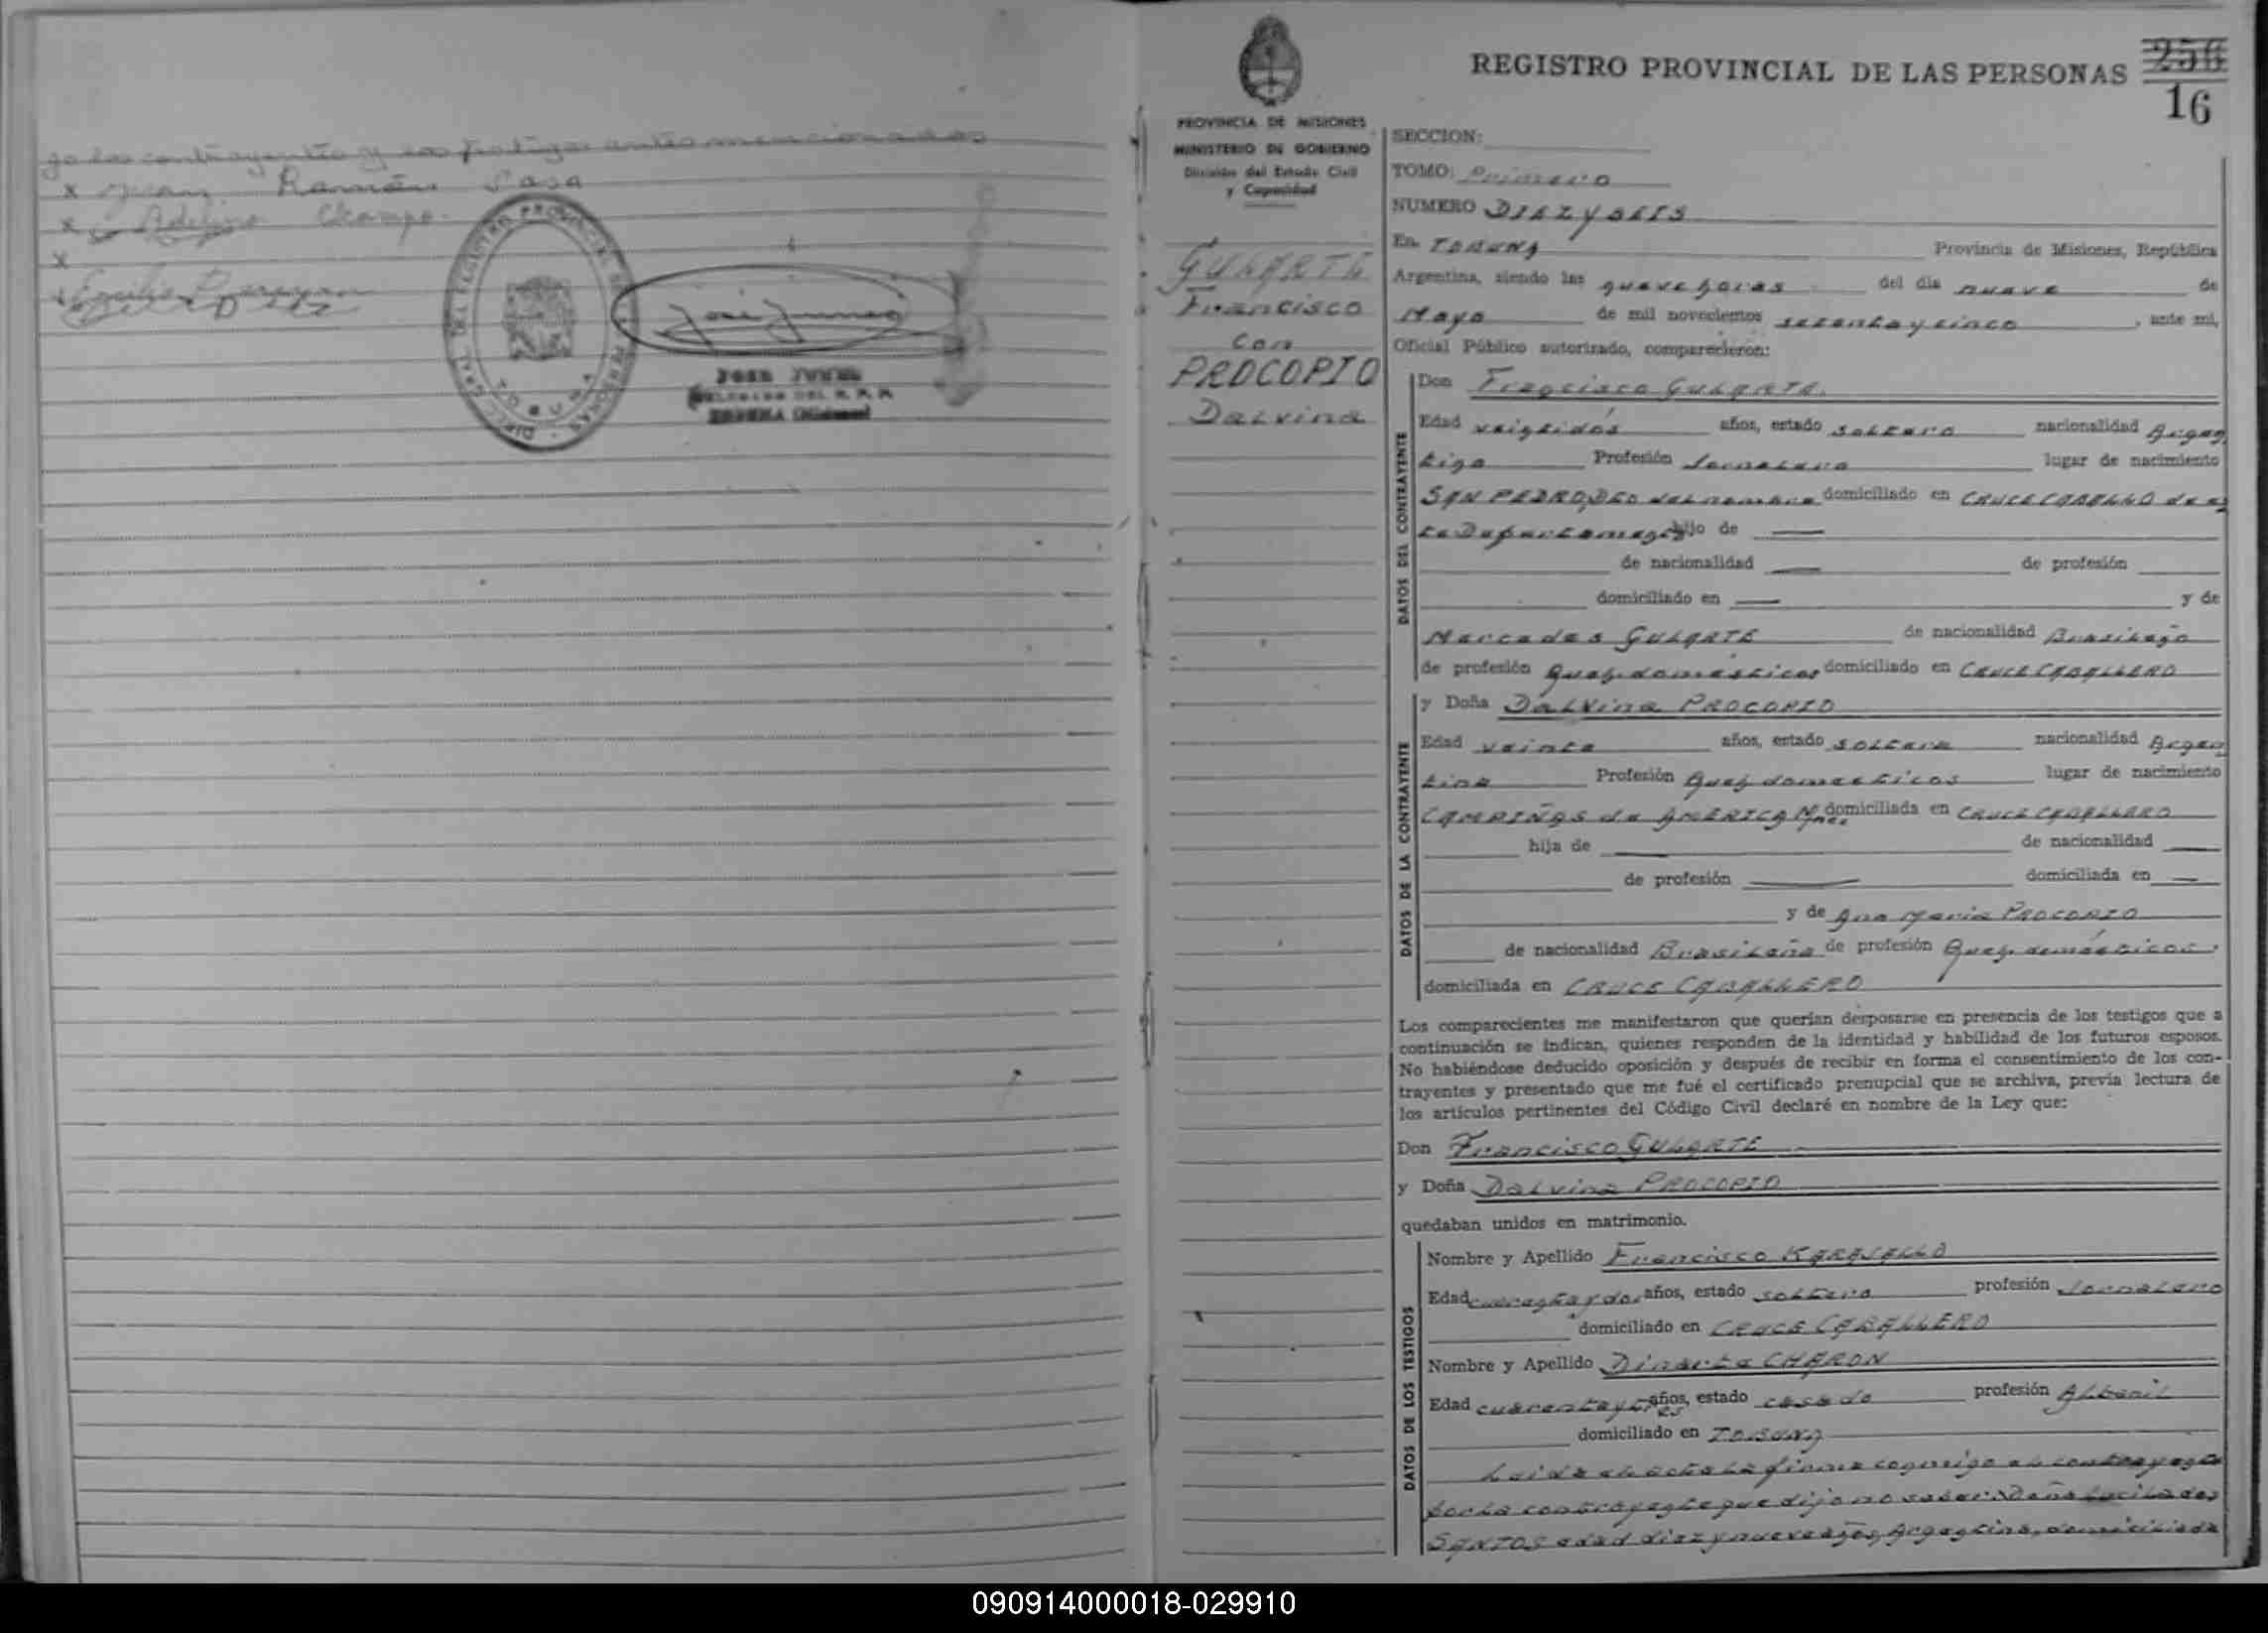 go los contrayentes y los testigos antes mencionados
x Juan Ramón Sosa
x Adelino Ocampo
x
JOSE
TOBUNA (Misiones)
PROVINCIA DE MISIONES
MINISTERIO DE GOBIERNO
División del Estado Civil
y Capacidad
GULARTE
Francisco
con
PROCOPIO
Dalvina
REGISTRO PROVINCIAL DE LAS PERSONAS 256
16
SECCION:
TOMO: Primero
NUMERO DIEZ y SEIS
En TOBUNA Provincia de Misiones, República
Argentina, siendo las nueve horas del día nueve de
Mayo de mil novecientos setenta y cinco, ante mí,
Oficial Público autorizado, comparecieron:
DATOS DEL CONTRAYENTE
Don Francisco GULARTE
Edad veintidós años, estado soltero nacionalidad Argen
tino Profesión Jornalero lugar de nacimiento
SAN PEDRO, DEO del nombre domiciliado en CRUCE CABALLERO de es
te Departamento hijo de
de nacionalidad de profesión
domiciliado en y de
Mercedes GULARTE de nacionalidad Brasileña
de profesión Queh. domésticos domiciliado en CRUCE CABALLERO
DATOS DE LA CONTRAYENTE
y Doña Dalvina PROCOPIO
Edad veinte años, estado soltera nacionalidad Argen
tina Profesión Queh. domésticos lugar de nacimiento
CAMPIÑAS de AMERICA Mnes. domiciliada en CRUCE CABALLERO
hija de de nacionalidad
de profesión domiciliada en
y de Ana María PROCOPIO
de nacionalidad Brasileña de profesión Queh. domésticos
domiciliada en CRUCE CABALLERO
Los comparecientes me manifestaron que querían desposarse en presencia de los testigos que a
continuación se indican, quienes responden de la identidad y habilidad de los futuros esposos.
No habiéndose deducido oposición y después de recibir en forma el consentimiento de los con-
trayentes y presentado que me fué el certificado prenupcial que se archiva, previa lectura de
los artículos pertinentes del Código Civil declaré en nombre de la Ley que:
Don Francisco GULARTE
y Doña Dalvina PROCOPIO
quedaban unidos en matrimonio.
DATOS DE LOS TESTIGOS
Nombre y Apellido Francisco
Edad cuarenta y dos años, estado soltero profesión Jornalero
domiciliado en CRUCE CABALLERO
Nombre y Apellido Dinarte CHARON
Edad cuarenta y tres años, estado casado profesión Albañil
domiciliado en TOBUNA
Leida el acta la firma conmigo el contrayente
por la contrayente que dijo no saber: Doña Lucila dos
SANTOS edad diez y nueve años, Argentina, domiciliada
090914000018-029910